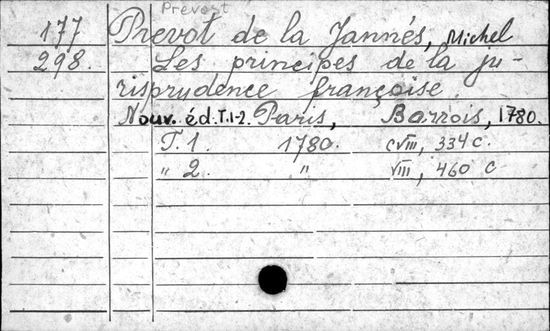 Prevost
177 Prevot de la Jannés, Michel
298. Les principes de la ju-
risprudence françoise.
Nouv. éd. T. 1-2. Paris, Barrois, 1780.
T. 1. 1780. cviii, 334 c.
" 2. " viii, 460 c